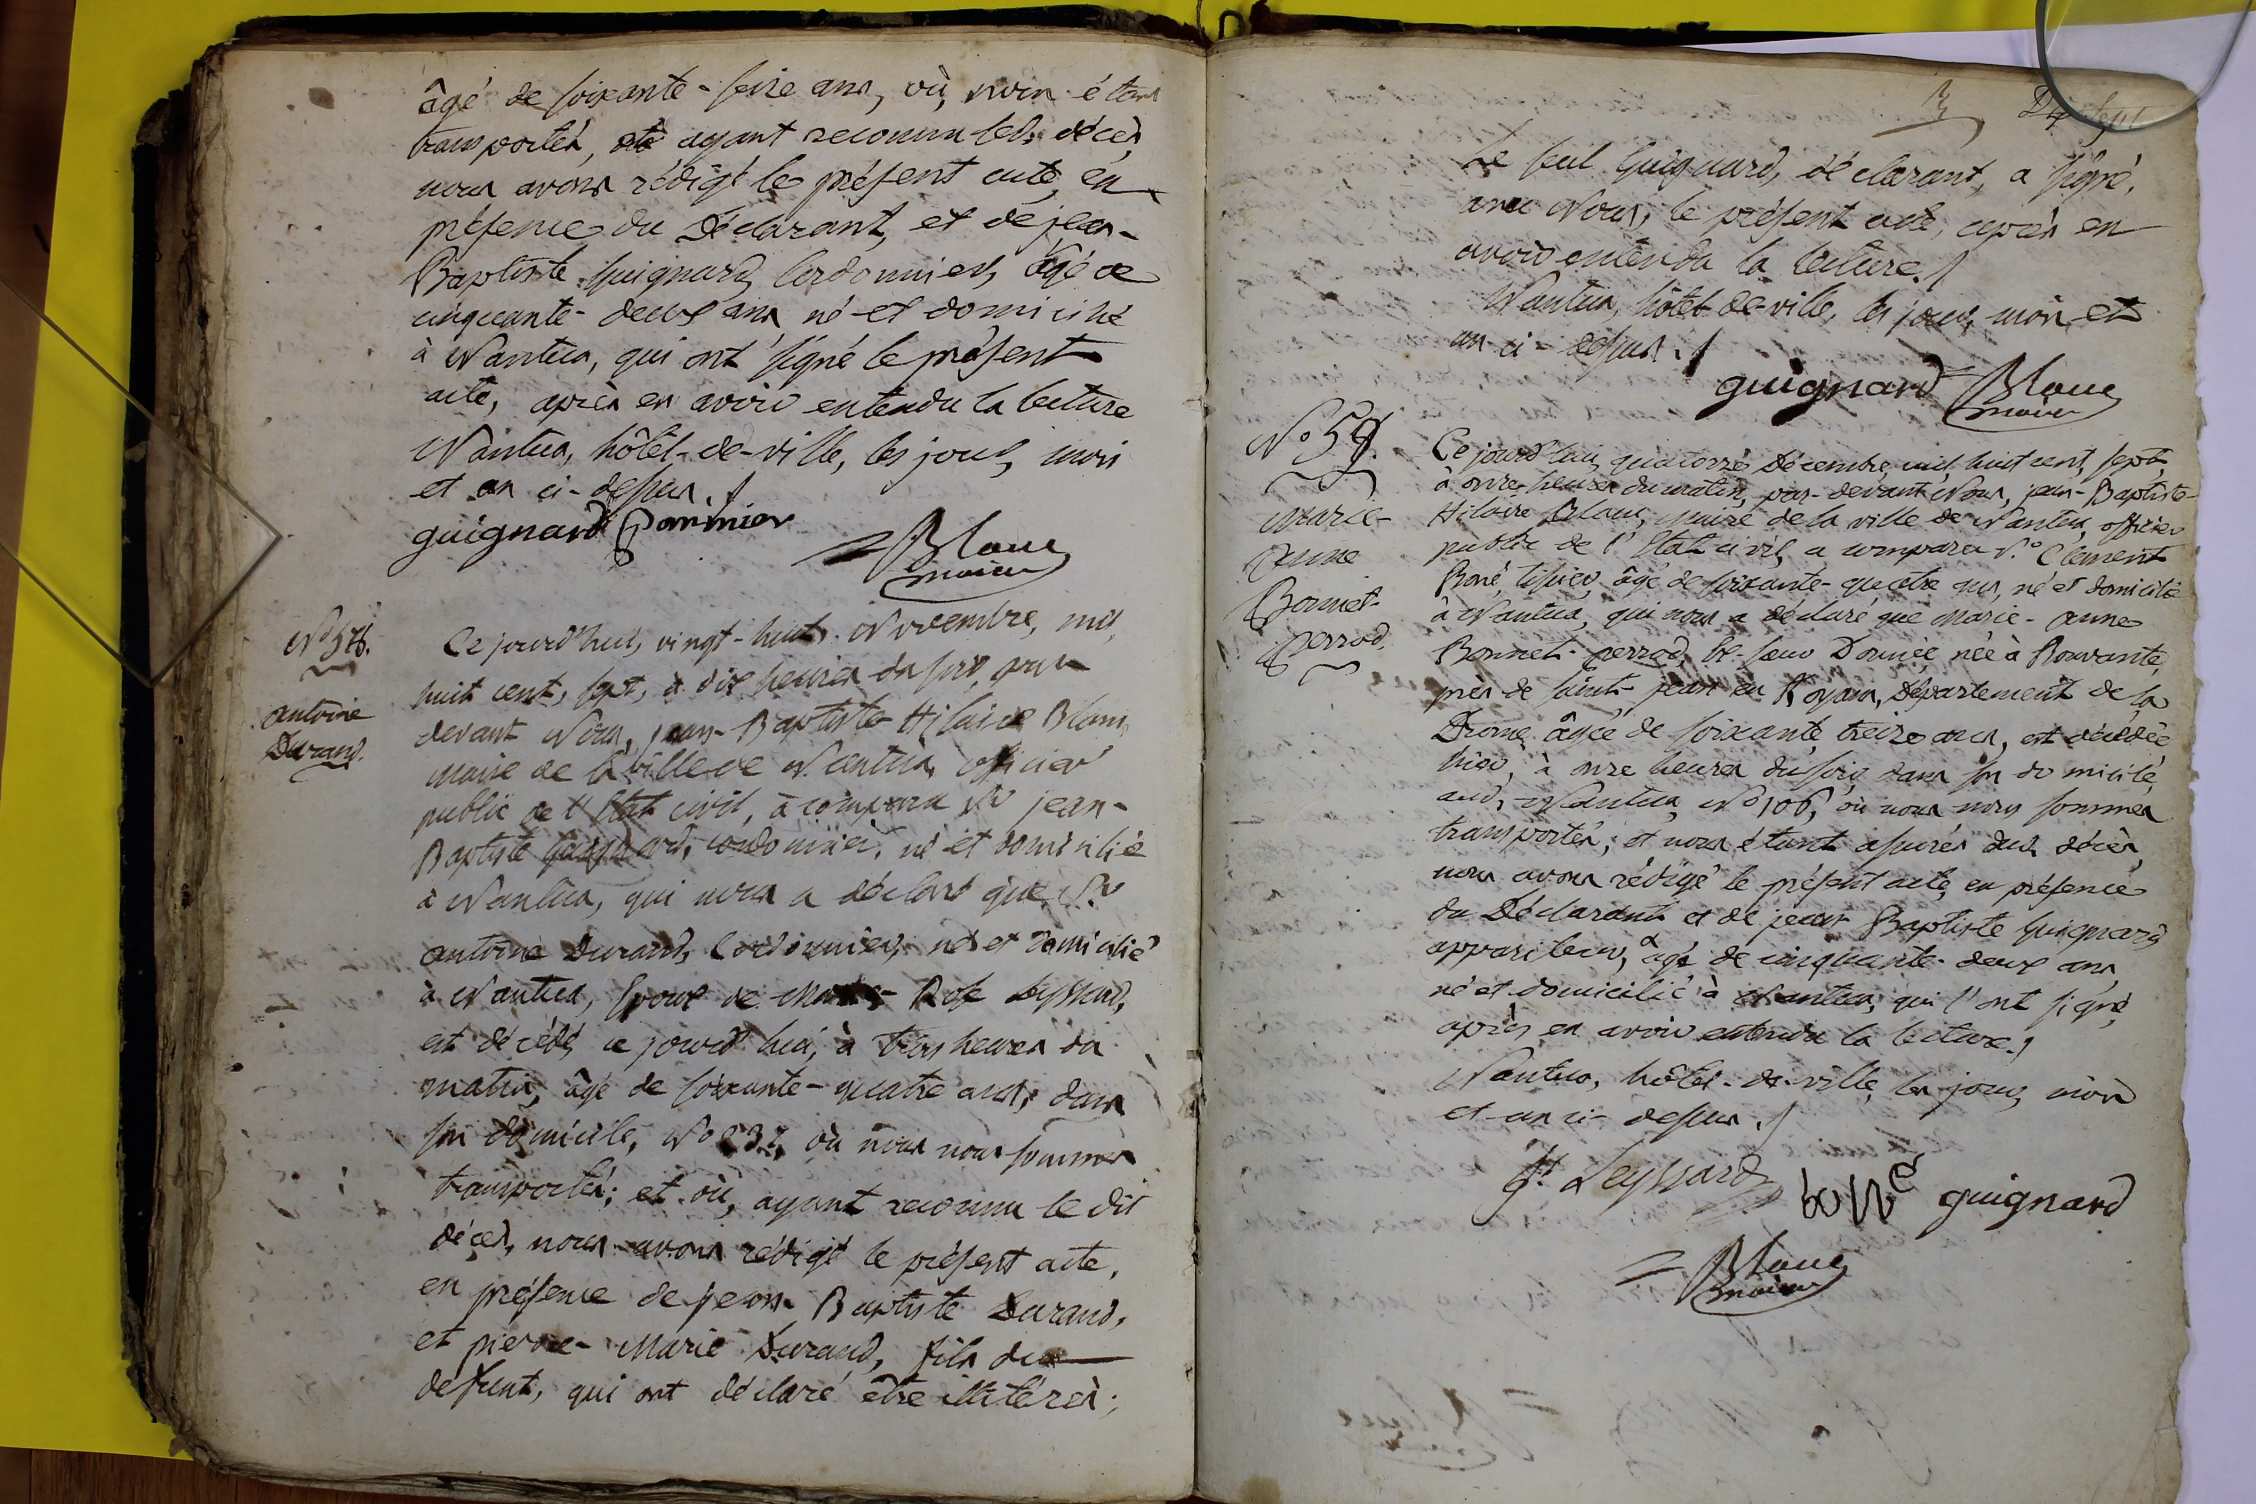 âgé de soixante-seize ans, où, nous étant
transportés, et ayant reconnu led. décès,
nous avons rédigé le présent acte, en
présence du Déclarant, et de jean-
Baptiste guignard, Cordonnier, âgé de
cinquante-deux ans, né et domicilié
à Nantua, qui ont signé le présent
acte, après en avoir entendu la lecture
Nantua, hôtel-de-ville, les jour, mois
et an ci-dessus./
guignard
Blanc
maire
N.o 58.
antoine
Durand.
Ce jourd'hui, vingt-huit Novembre, mil
huit cent, sept, à dix heures du soir, par
devant Nous, jean-Baptiste Hilaire Blanc,
maire de la ville de Nantua, officier
public de l'Etat civil, a comparu Sr jean-
Baptiste guignard, cordonnier, né et domicilié
à Nantua, qui nous a déclaré que Sr
antoine Durand, Cordonnier, né et domicilié
à Nantua, Epoux de Marie-Rose Leyssard,
est décédé, ce jourd'hui, à trois heures du
matin, âgé de soixante-quatre ans, dans
son domicile, où nous nous sommes
transportés; et où, ayant reconnu le dit
décès, nous avons rédigé le présent acte,
en présence de jean-Baptiste Durand,
et pierre-Marie Durand, fils du
défunt, qui ont déclaré être illitérés;
Le seul guignard, déclarant, a signé,
avec Nous, le présent acte, après en
avoir entendu la lecture./
Nantua, hôtel-de-ville, les jour, mois et
an ci-dessus./
guignard Blanc
maire
N.o 59.
Marie-
Anne
Bonnet-
perrod.
Ce jourd'hui, quatorze Décembre, mil huit cent, sept,
à onze heures du matin, par-devant Nous, jean-Baptiste-
Hilaire Blanc, Maire de la ville de Nantua, officier
public de l'Etat civil, a comparu S.r Clement
Boné, tissier, âgé de soixante-quatre ans, né et domicilié
à Nantua, qui nous a déclaré que Marie-Anne
Bonnet-perrod, née à Bouvante,
près de saint-jean en Royans, Département de la
Drome, âgée de soixante treize ans, est décédée
hier, à onze heures du soir, dans son domicile,
aud. Nantua, N.o 106, où nous nous sommes
transportés; et nous étant assurés dud. décès,
nous avons rédigé le présent acte, en présence
du Déclarant et de jean-Baptiste guignard,
appariteur, âgé de cinquante-deux ans,
né et domicilié à Nantua, qui l'ont signé,
après en avoir entendu la lecture./
Nantua, hôtel-de-ville, les jour, mois
et an ci-dessus./
Leyssard boné guignard
Blanc
maire